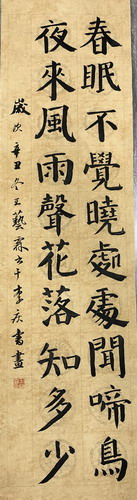 春眠不覺曉處處聞啼鳥
夜來風雨聲花落知多少
歲次辛丑冬王藝霖书于李庆書畫